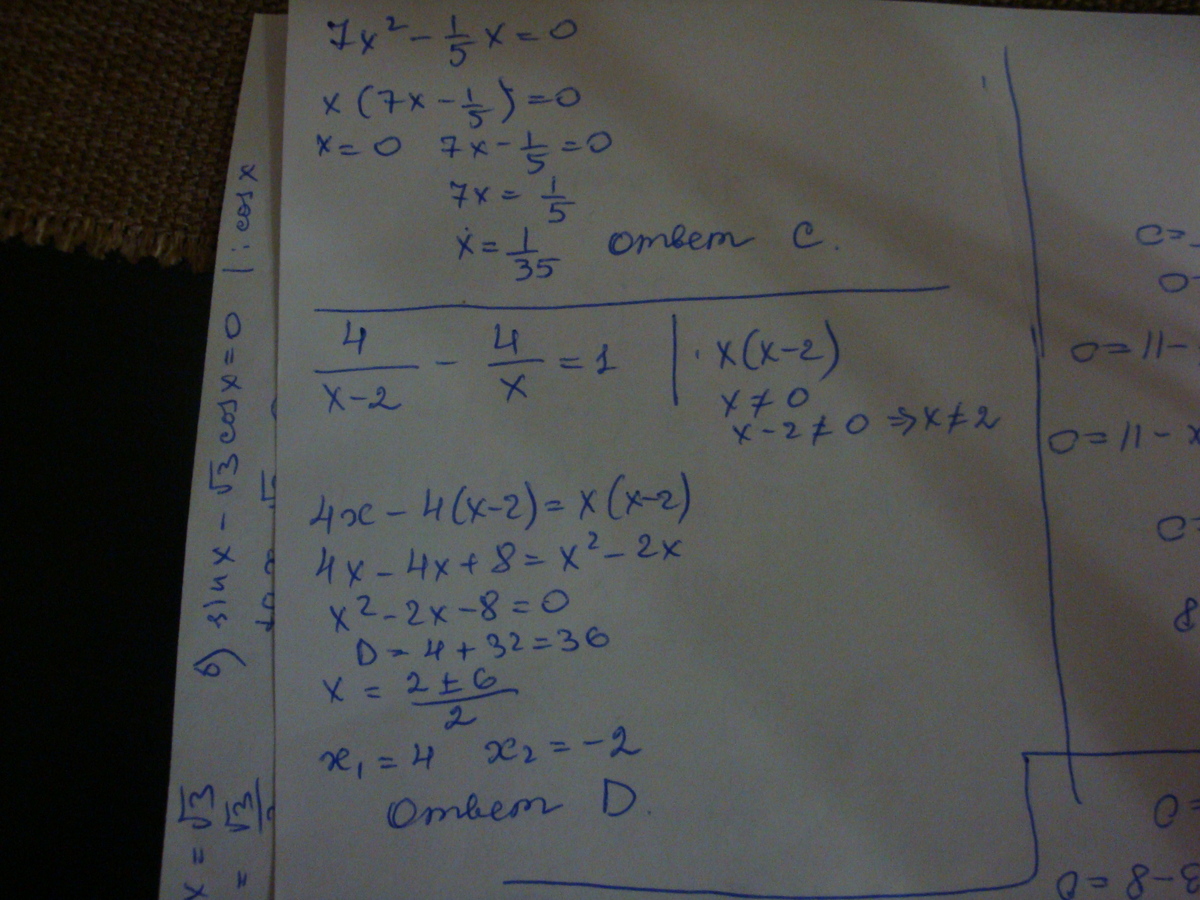 7x² - 1/5 x = 0
x (7x - 1/5) = 0
x = 0 7x - 1/5 = 0
7x = 1/5
x = 1/35 ответ C.
4/(x-2) - 4/x = 1 | · x(x-2)
x ≠ 0
x - 2 ≠ 0 ⇒ x ≠ 2
4x - 4(x-2) = x(x-2)
4x - 4x + 8 = x² - 2x
x² - 2x - 8 = 0
D = 4 + 32 = 36
x = (2 ± 6)/2
x₁ = 4 x₂ = -2
ответ D.
б) sin x - √3 cos x = 0 | : cos x
x = √3